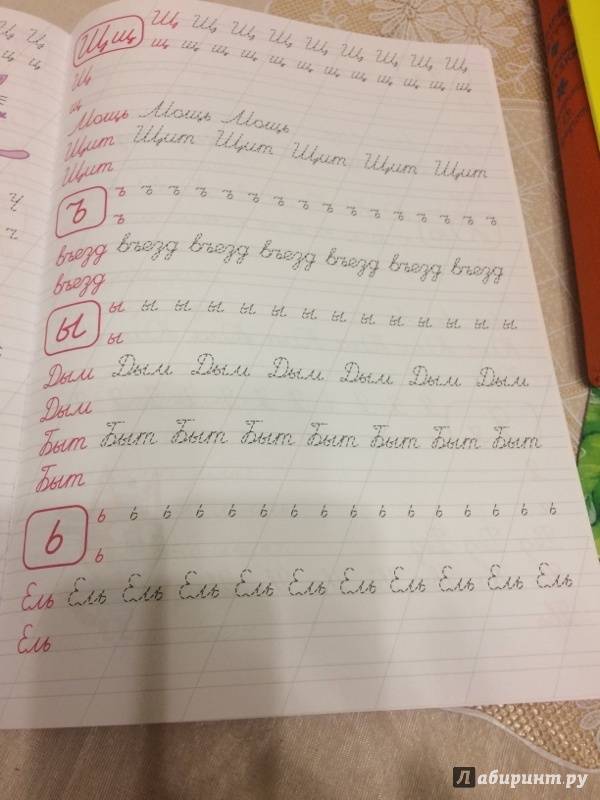 Щщ Щ Щ Щ Щ Щ Щ Щ Щ Щ
щ щ щ щ щ щ щ щ щ щ щ
Щ
щ
Мощь Мощь Мощь
Щит Щит Щит Щит Щит Щит
Щит
Ъ ъ ъ ъ ъ ъ ъ ъ ъ ъ ъ ъ ъ ъ ъ
ъ
въезд въезд въезд въезд въезд въезд въезд
въезд
ы ы ы ы ы ы ы ы ы ы ы ы ы ы
ы
Дым Дым Дым Дым Дым Дым Дым
Дым
Быт Быт Быт Быт Быт Быт Быт Быт
Быт
ь ь ь ь ь ь ь ь ь ь ь ь ь ь ь ь
ь
Ель Ель Ель Ель Ель Ель Ель Ель Ель Ель Ель
Ель
Лабиринт.ру